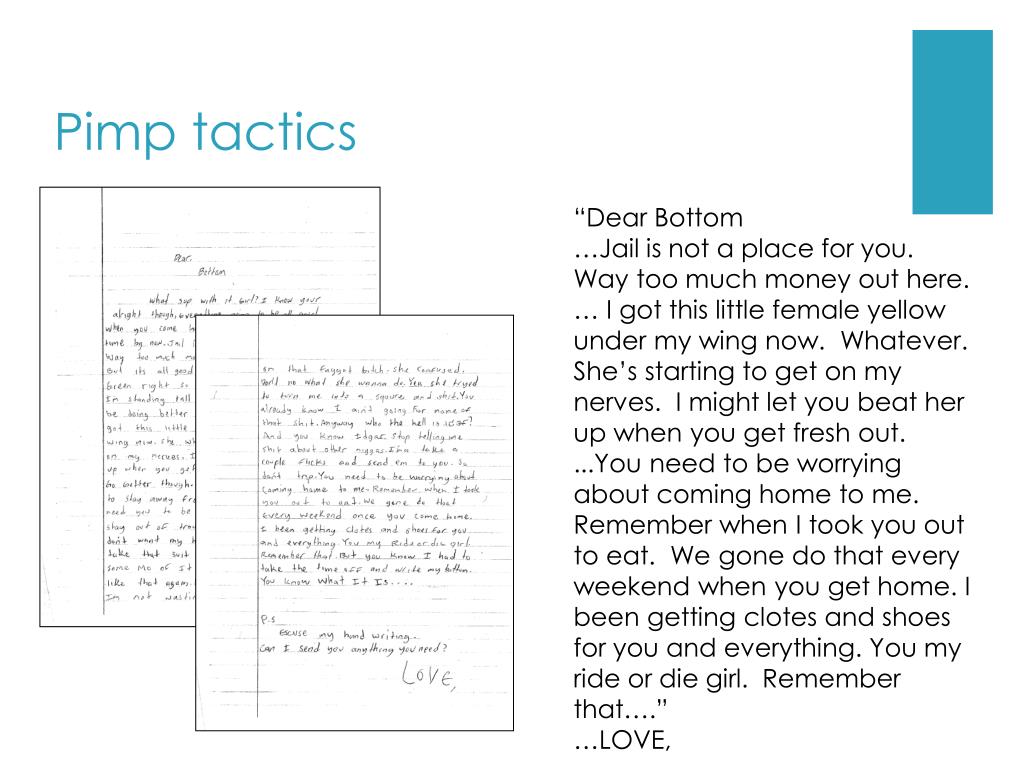 Pimp tactics
Dear,
Bottom
What sup with it Girl? I know your
alright though,
when you come
time by now. Jail
Way too much
But its all good
Green right so
Im standing tall
be doing better
got this little
wing now. She
on my nerves. I
up when you get
Go better though.
to stay away
need you to be
stay out of
don't want my
take that
some Mo of it
like that again.
Im not
on that faggot bitch. she confused.
Don't no what she wanna do. Yea she tryed
to turn me into a square and shit. You
already know I ain't going for none of
that shit. Anyway who the hell is
And you know Edgar. Stop telling me
shit about other niggas. Ima take a
couple flicks and send em to you. So
don't trip. You need to be worrying about
coming home to me. Remember when I took
you out to eat. We gone do that
every weekend once you come home.
I been getting clotes and shoes for you
and everything. You my Ride or die girl.
Remember that. But you know I had to
take the time off and write my bottom.
You know What It Is....
P.S
Escuse my hand writing.
Can I send you anything you need?
LOVE,
“Dear Bottom
…Jail is not a place for you.
Way too much money out here.
… I got this little female yellow
under my wing now.  Whatever.
She’s starting to get on my
nerves.  I might let you beat her
up when you get fresh out.
...You need to be worrying
about coming home to me.
Remember when I took you out
to eat.  We gone do that every
weekend when you get home. I
been getting clotes and shoes
for you and everything. You my
ride or die girl.  Remember
that….”
…LOVE,